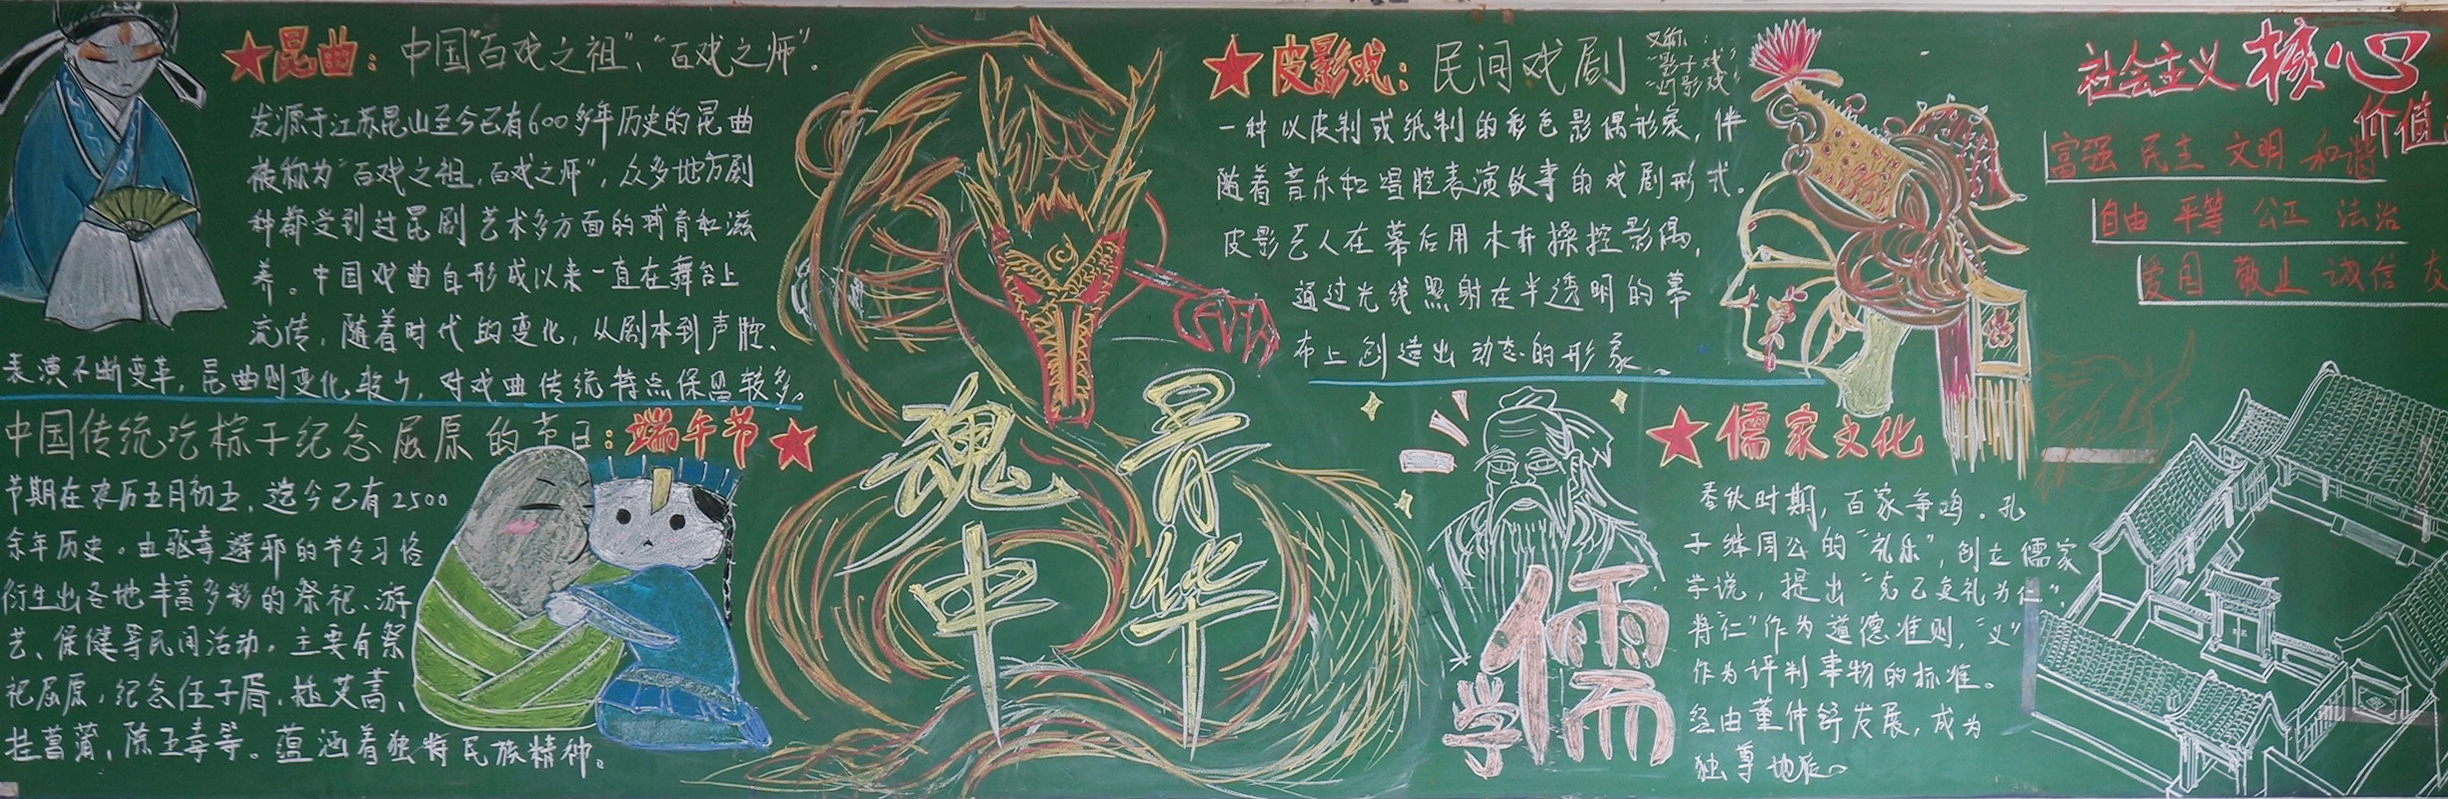 ★昆曲：中国"百戏之祖"、"百戏之师"．
发源于江苏昆山至今已有600多年历史的昆曲
被称为"百戏之祖，百戏之师"，众多地方剧
种都受到过昆剧艺术多方面的哺育和滋
养。中国戏曲自形成以来一直在舞台上
流传，随着时代的变化，从剧本到声腔、
表演不断变革，昆曲则变化较少，对戏曲传统特点保留较多。
中国传统吃粽子纪念屈原的节日：端午节★
节期在农历五月初五，迄今已有2500
余年历史．由驱毒避邪的节令习俗
衍生出各地丰富多彩的祭祀、游
艺、保健等民间活动．主要有祭
祀屈原，纪念伍子胥，插艾蒿、
挂菖蒲、除五毒等。蕴涵着独特民族精神。
魂 骨
中 华
★皮影戏：民间戏剧
又称：
"影子戏"
"灯影戏"
一种以皮制或纸制的彩色影偶形象，伴
随着音乐和唱腔表演故事的戏剧形式．
皮影艺人在幕后用木杆操控影偶，
通过光线照射在半透明的幕
布上创造出动态的形象。
★儒家文化
春秋时期，百家争鸣．孔
子继周公的"礼乐"，创立儒家
学说，提出"克己复礼为仁"．
将"仁"作为道德准则，"义"
作为评判事物的标准。
经由董仲舒发展，成为
独尊地位。
学儒
社会主义核心
价值
富强 民主 文明 和谐
自由 平等 公正 法治
爱国 敬业 诚信 友